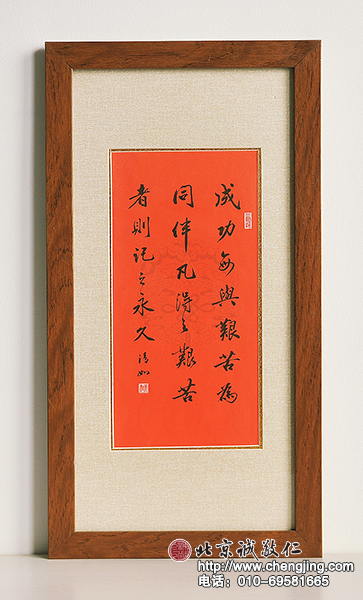 成功每與艱苦為
同伴凡得之艱苦
者則記之永久清如
北京诚敬仁
http://www.chengjing.com
电话：010-69581665